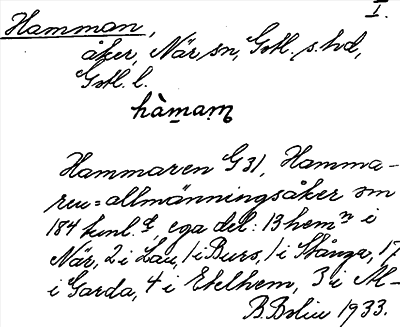 I.
Hamman,
åker, När sn, Gotl. s. hd,
Gotl. l.
hàmaṃ
Hammaren G 31, Hamma-
ren = allmänningsåker om
184 kunl.d, ega del: 13 hemn i
När, 2 i Lau, 1 i Burs, 1 i Stånga, 17
i Garda, 4 i Etelhem, 3 i Al-
B. Bolin 1933.